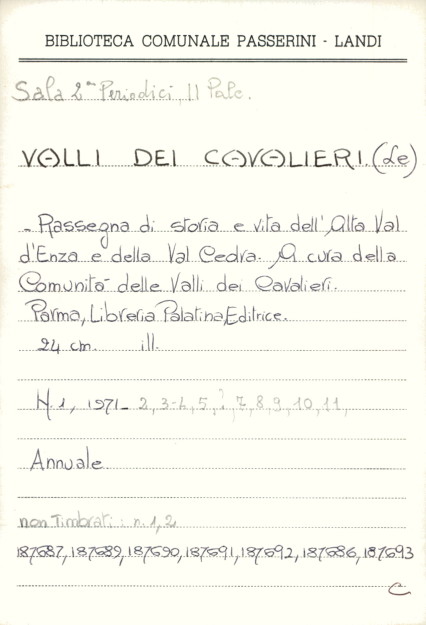 BIBLIOTECA COMUNALE PASSERINI - LANDI
Sala 2ª Periodici, II Palc.
VALLI DEI CAVALIERI.(Le)
- Rassegna di storia e vita dell'Alta Val
d'Enza e della Val Cedra. A cura della
Comunità delle Valli dei Cavalieri.
Parma, Libreria Palatina Editrice.
24 cm. ill.
N.1, 1971- 2, 3-4, 5, ?, 7, 8, 9, 10, 11,
Annuale.
non Timbrati: n. 1, 2
187687, 187689, 187690, 187691, 187692, 187686, 187693
C